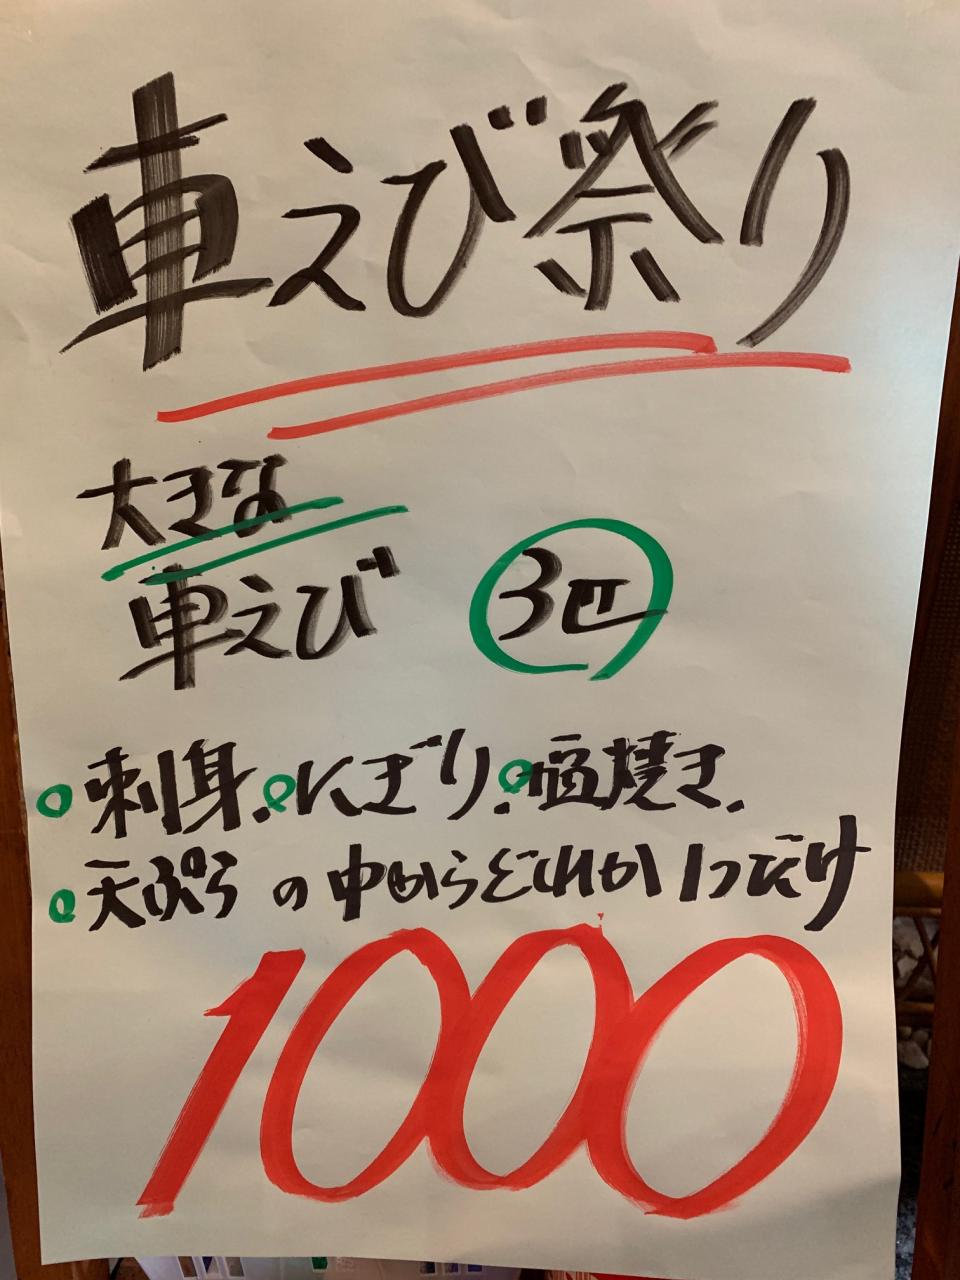 車えび祭り
大きな
車えび 3匹
刺身.にぎり.塩焼き.
天ぷらの中からどれか1つだけ
1000